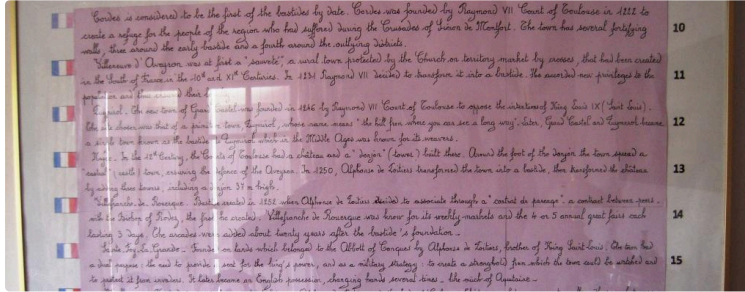 Cordes is considered to be the first of the bastides by date. Cordes was founded by Raymond VII Count of Toulouse in 1222 to
10
create a refuge for the people of the region who had suffered during the Crusades of Simon de Montfort. The town has several fortifying
walls, three around the early bastide and a fourth around the outlying districts.
Villeneuve d'Aveyron was at first a "sauveté", a rural town protected by the Church on territory marked by crosses, that had been created
11
in the South of France in the and XI Centuries. In 1231 Raymond VII decided to transform it into a bastide. He accorded new privileges to the
population and
The new town of Grand Castel was founded in 1246 by Raymond VII Count of Toulouse to oppose the intentions of King Louis IX (Saint Louis).
12
The site chosen was that of a town, whose name means "the hill from where you can see a long way". Later, Grand Castel and became
a single town known as the bastide in the Middle Ages was known for its weavers.
In the 12th Century, the Counts of Toulouse had a château and a "donjon" (tower) built there. Around the foot of the donjon the town spread a
13
town, ensuring the defence of the Aveyron. In 1250, Alphonse de Poitiers transformed the town into a bastide, then transformed the château
by adding three towers, including a donjon 34 m high.
Villefranche de Rouergue. Bastide created in 1252 when Alphonse de Poitiers decided to associate through a "contrat de pareage", a contract between peers
14
with the of Rodez, the first he created. Villefranche de Rouergue was know for its weekly markets and the 4 or 5 annual great fairs each
lasting 3 days. The arcades were added about twenty years after the bastide's foundation.
Sainte Foy La Grande. Founded on lands which belonged to the Abbott of Conques by Alphonse de Poitiers, brother of King Saint Louis. The town had
15
a dual purpose: the need to provide a seat for the king's power, and as a military strategy: to create a stronghold from which the town could be watched and
to protect it from invaders. It later became an English possession, changing hands several times - like much of Aquitaine.